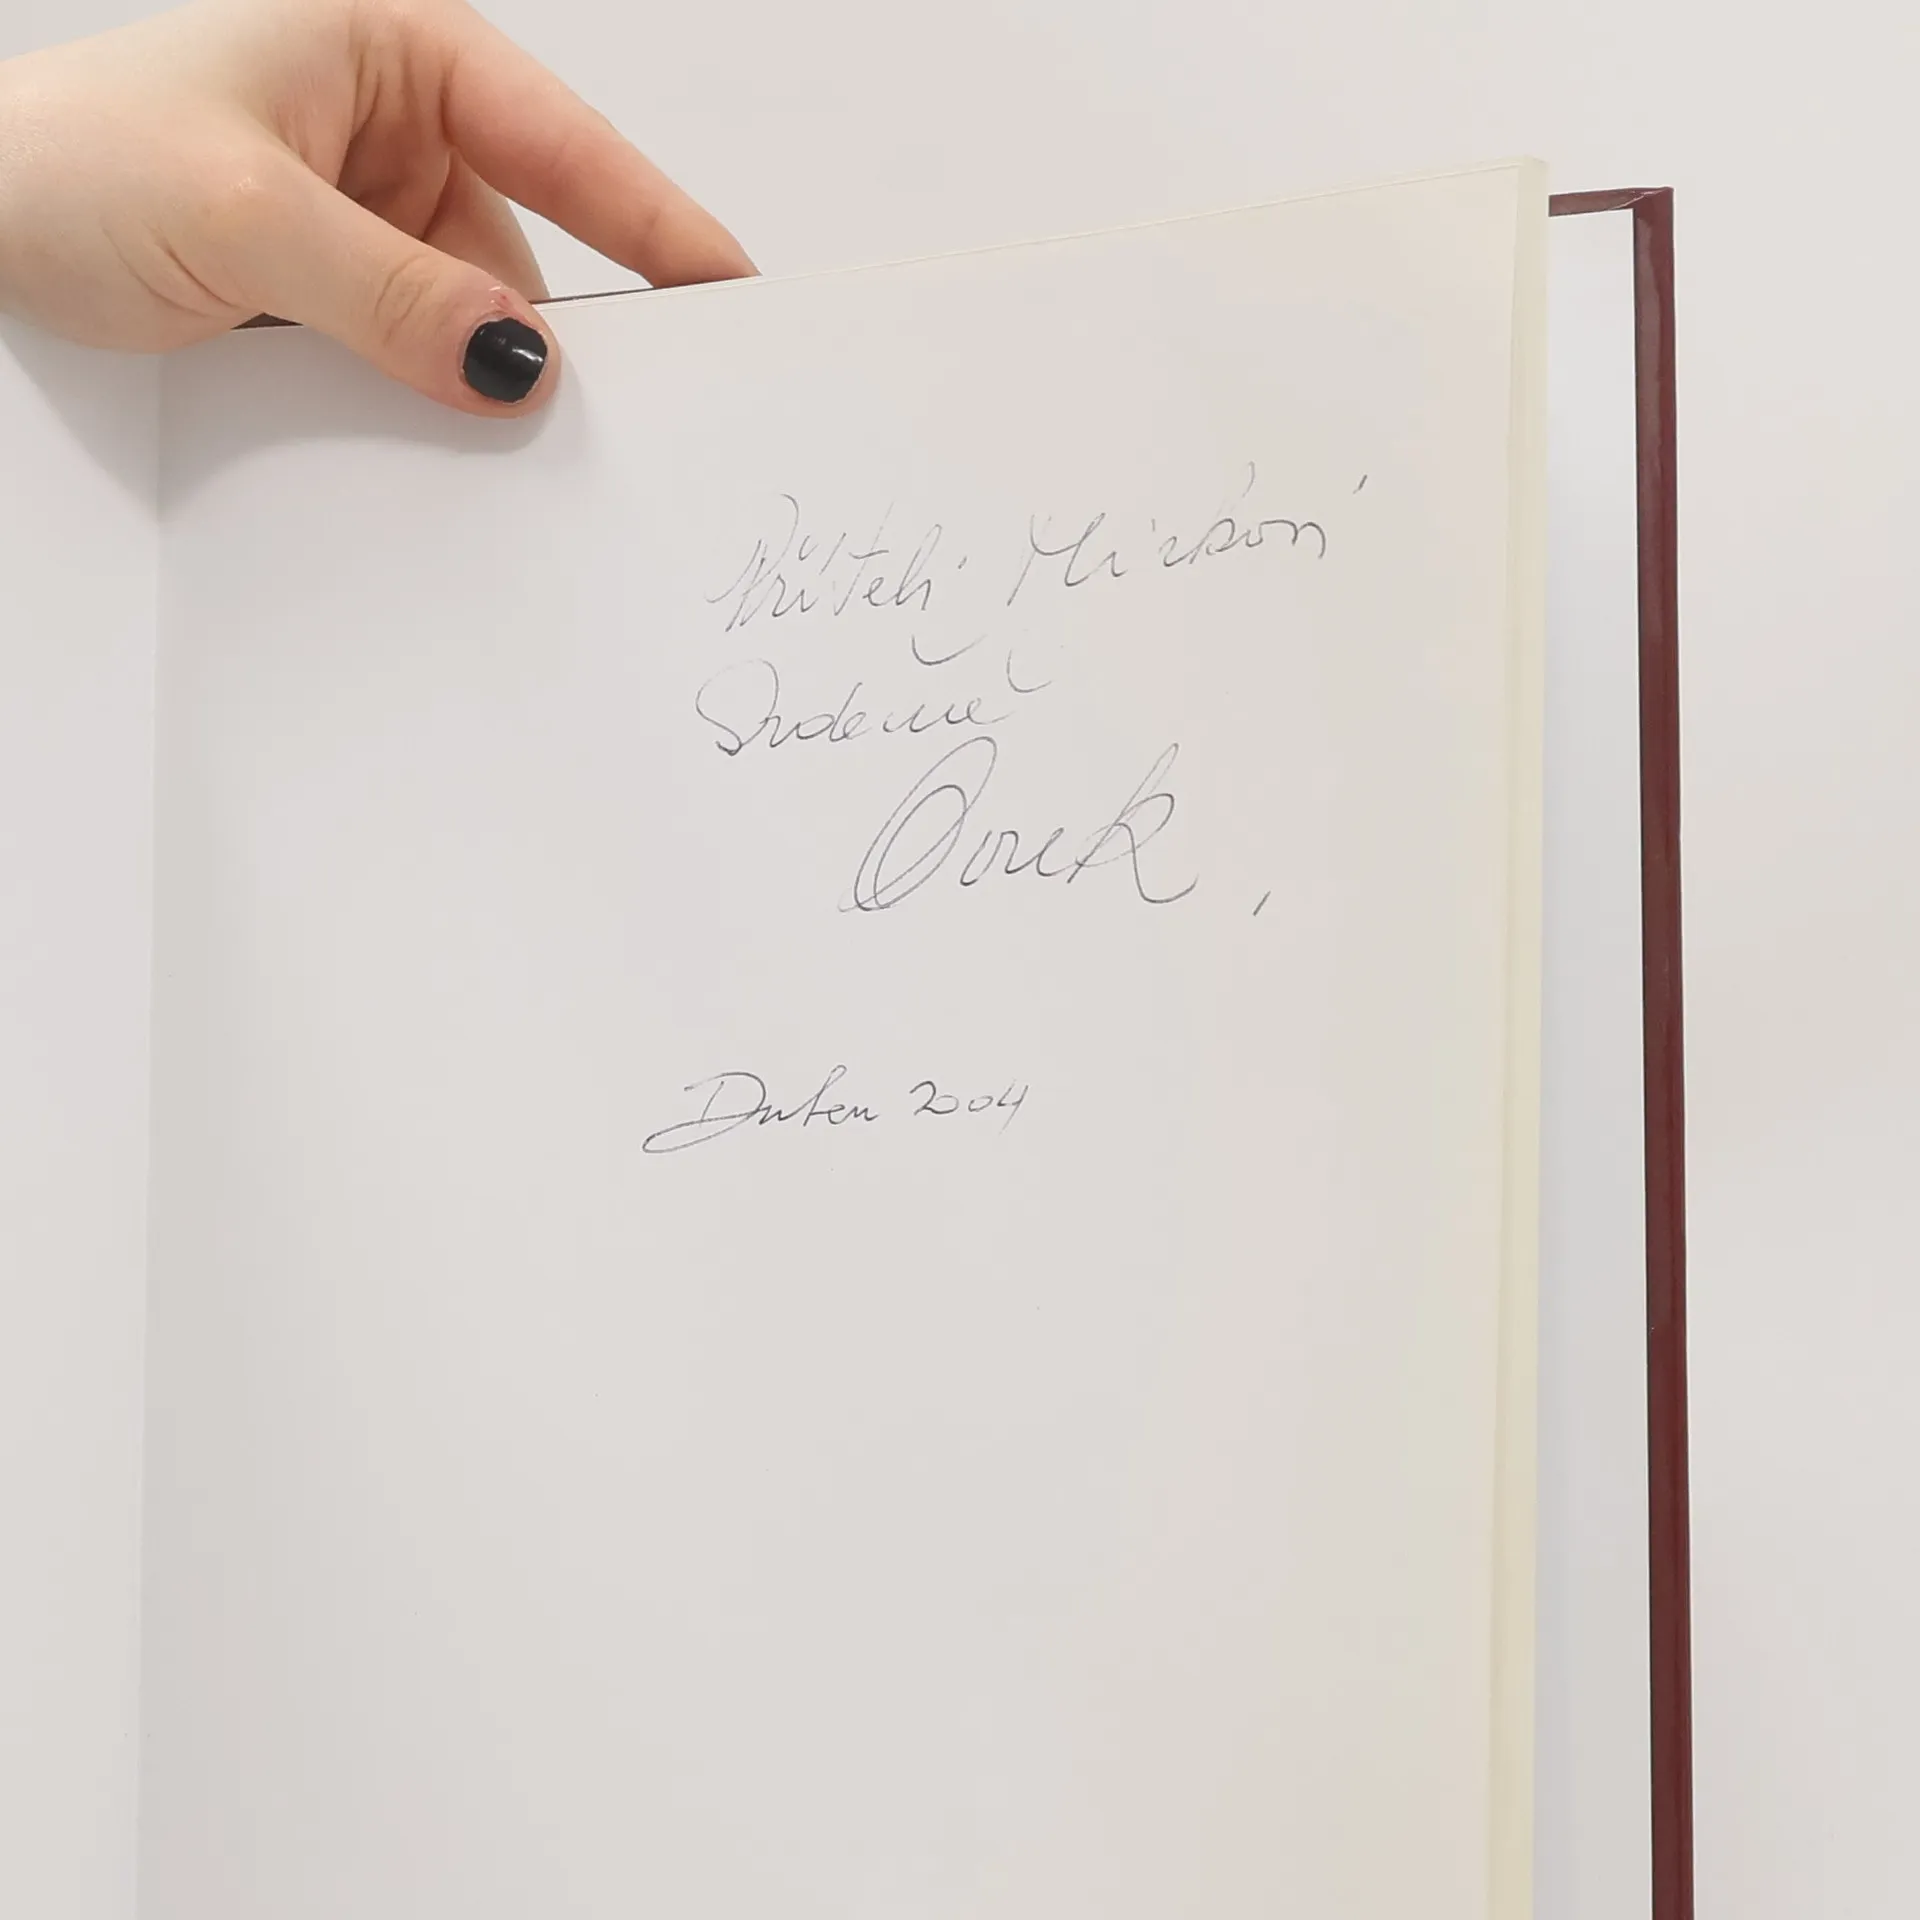 Příteli Mirkovi
Srdečně
Duben 2004